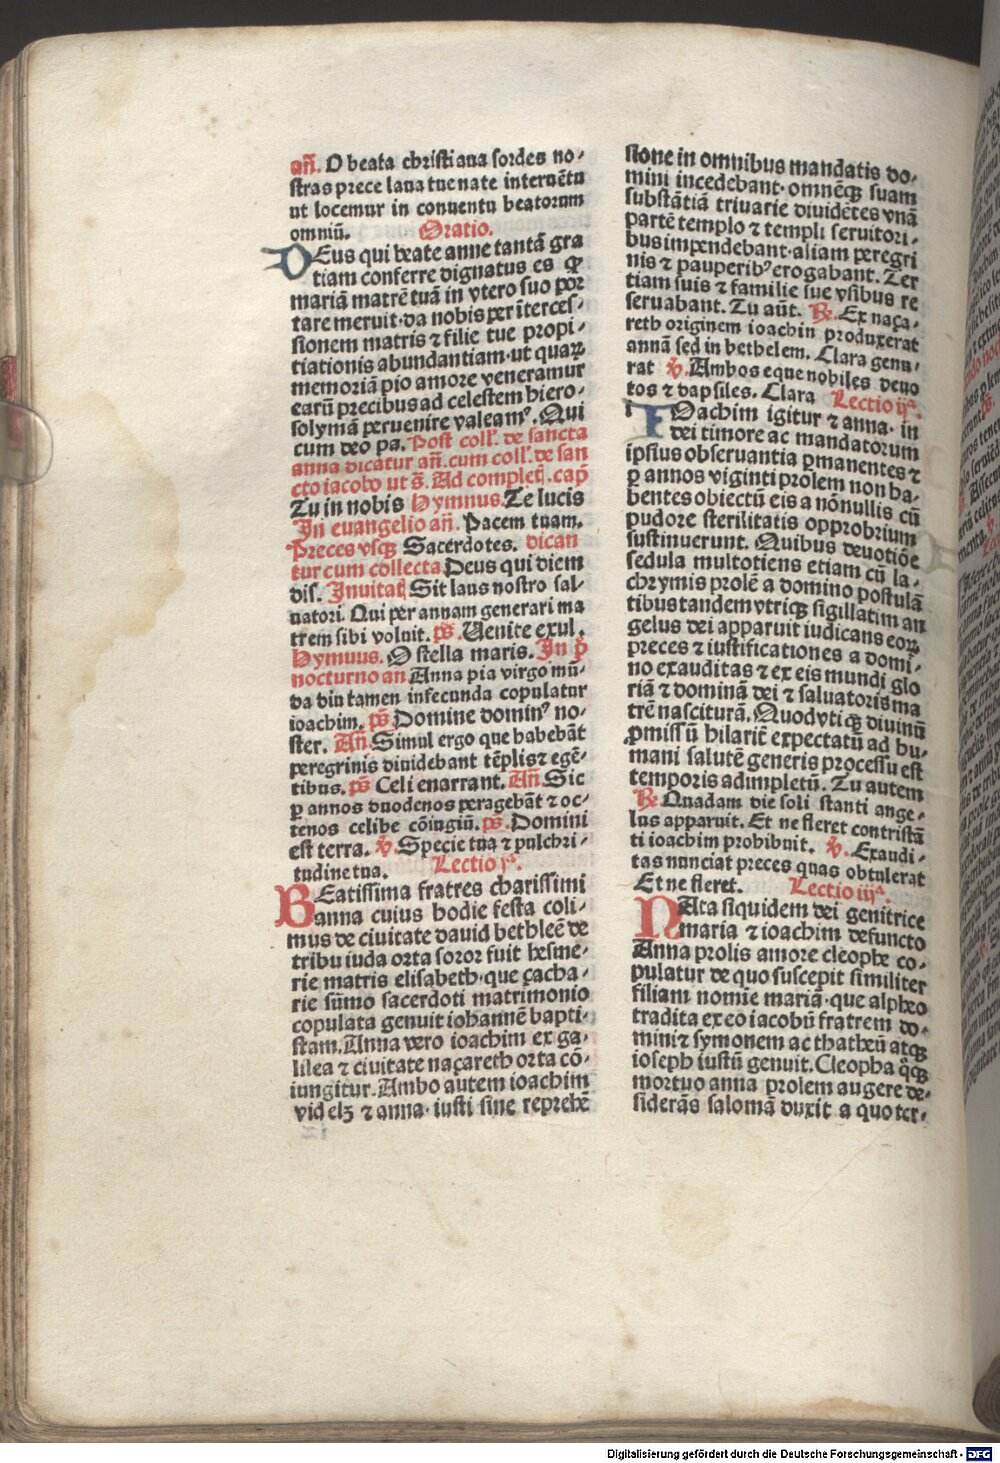 an̄. O beata christiana sordes no⸗
stras prece laua tue nate interuētu
ut locemur in conuentu beatorum
omniū. Oratio.
DEus qui beate anne tantā gra
tiam conferre dignatus es ꝙ
mariā matrē tuā in vtero suo por
tare meruit·da nobis per ītercess⸗
sionem matris ⁊ filie tue propi⸗
tiationis abundantiam·ut quaꝝ
memoriā pio amore veneramur
earū precibus ad celestem hiero⸗
solymā peruenire valeamꝰ. Qui
cum deo pa. Post coll'. de sancta
anna dicatur an̄.cum coll'.de san
cto iacobo ut s̄. Ad complet̄.cap̄
Tu in nobis Hymnus. Te lucis
In euangelio an̄. Pacem tuam.
Preces vsqꝫ Sacerdotes. dican
tur cum collecta Deus qui diem
dis. Inuitat̄ Sit laus nostro sal⸗
uatori. Qui per annam generari ma
trem sibi voluit. ps̄. Uenite exul.
Hymnus. O stella maris. In p̄
nocturno an Anna pia virgo mū⸗
da diu tamen infecunda copulatur
ioachim. ps̄ Domine dominꝰ no⸗
ster. An̄ Simul ergo que habebāt
peregrinis diuidebant tēplis⁊ egē⸗
tibus. ps̄ Celi enarrant. An̄ Sic
ꝑ annos duodenos peragebāt ⁊ oc⸗
tenos celibe cōiugiū. ps̄. Domini
est terra. ℣. Specie tua ⁊ pulchri⸗
tudine tua. Lectio jᵃ.
BEatissima fratres charissimi
anna cuius hodie festa coli⸗
mus de ciuitate dauid bethleē de
tribu iuda orta soror fuit hesme⸗
rie matris elisabeth·que çacha⸗
rie sūmo sacerdoti matrimonio
copulata genuit iohannē bapti⸗
stam. Anna vero ioachim ex ga⸗
lilea ⁊ ciuitate naçareth orta cō⸗
iungitur. Ambo autem ioachim
vid elꝫ ⁊ anna· iusti sine reprehē
sione in omnibus mandatis do⸗
mini incedebant· omnēqꝫ suam
substātiā triuarie diuidētes vnā
partē templo ⁊ templi seruitori⸗
bus impendebant·aliam peregri
nis ⁊ pauperibꝰ erogabant. Ter
tiam suis ⁊ familie sue vsibus re
seruabant. Tu aūt. ℞. Ex naça⸗
reth originem ioachin produxerat
annā sed in bethelem. Clara genu⸗
rat ℣. Ambos eque nobiles deuo
tos ⁊ dapsiles. Clara Lectio ijᵃ.
IOachim igitur ⁊ anna· in
dei timore ac mandatorum
ipsius obseruantia ꝑmanentes ⁊
ꝑ annos viginti prolem non ha⸗
bentes obiectū eis a nōnullis cū
pudore sterilitatis opprobrium
sustinuerunt. Quibus deuotiōe
sedula multotiens etiam cū la⸗
chrymis prolē a domino postulā
tibus tandem vtriqꝫ sigillatim an
gelus dei apparuit iudicans eoꝝ
preces ⁊ iustificationes a domi⸗
no exauditas ⁊ ex eis mundi glo
riā ⁊ dominā dei ⁊ saluatoris ma
trē nasciturā. Quod vtiqꝫ diuinū
ꝓmissū hilarit̄ expectatū ad hu⸗
mani salutē generis processu est
temporis adimpletū. Tu autem
℞ Quadam die soli stanti ange⸗
lus apparuit. Et ne fleret contristā
ti ioachim prohibuit. ℣. Exaudi⸗
tas nunciat preces quas obtulerat
Et ne fleret. Lectio iijᵃ.
NAta siquidem dei genitrice
maria ⁊ ioachim defuncto
Anna prolis amore cleophe co⸗
pulatur de quo suscepit similiter
filiam nomīe mariā·que alpheo
tradita ex eo iacobū fratrem do⸗
mini⁊ symonem ac thatheū atqꝫ
ioseph iustū genuit. Cleopha q̊qꝫ
mortuo anna prolem augere de⸗
siderās salomā duxit a quo ter⸗
Digitalisierung gefördert durch die Deutsche Forschungsgemeinschaft - DFG